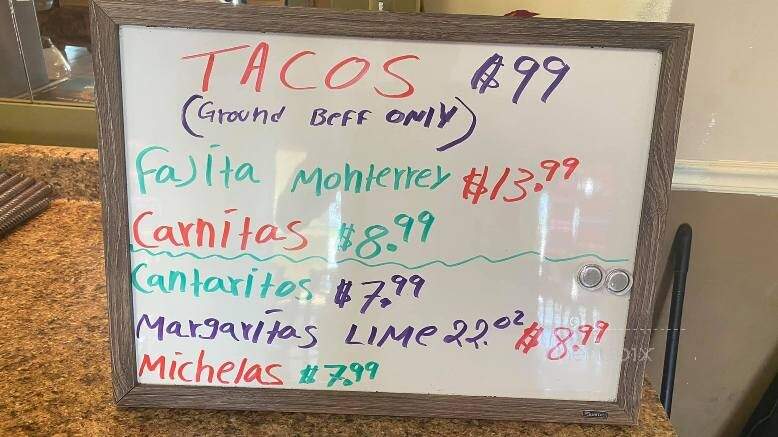 TACOS $99
(Ground BeFF ONlY)
Fajita Monterrey $13.99
Carnitas $8.99
Cantaritos $7.99
Margaritas LIME 22.oz $8.99
Michelas $7.99